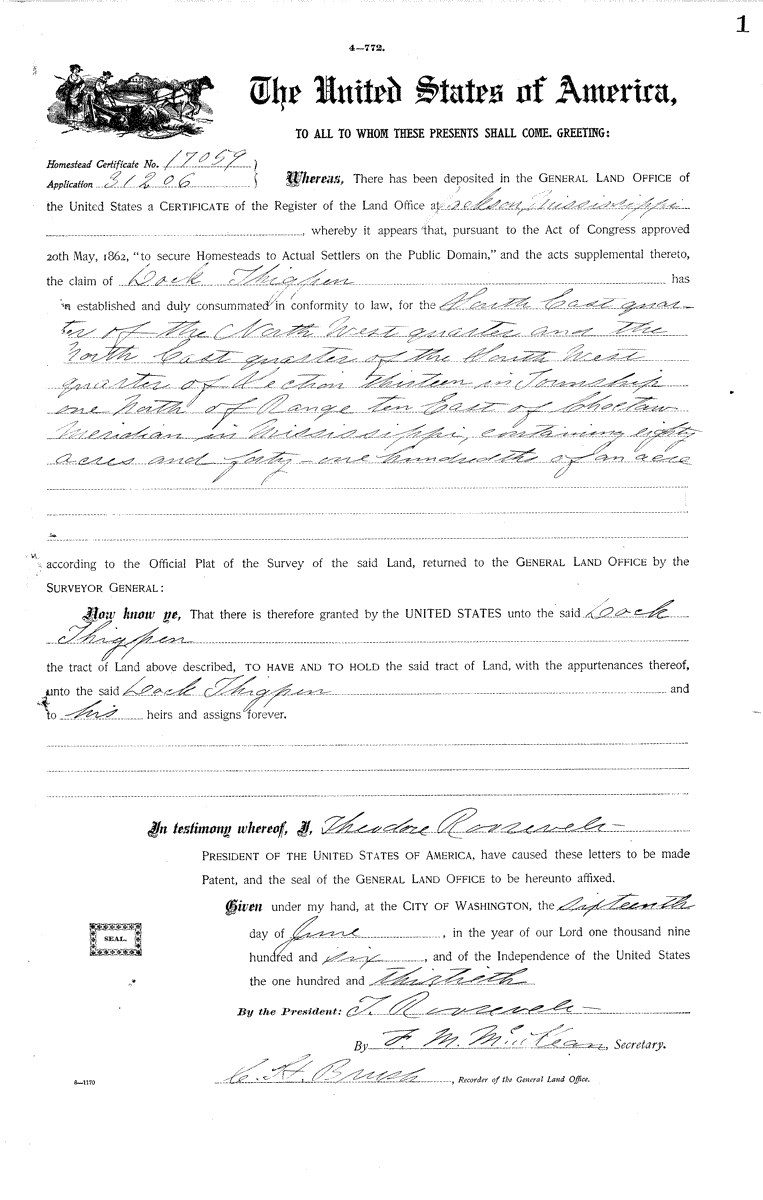 1
4—772.
The United States of America,
TO ALL TO WHOM THESE PRESENTS SHALL COME, GREETING:
Homestead Certificate No. 17059
Application 31206
Whereas, There has been deposited in the GENERAL LAND OFFICE of
the United States a CERTIFICATE of the Register of the Land Office at Jackson, Mississippi
, whereby it appears that, pursuant to the Act of Congress approved
20th May, 1862, "to secure Homesteads to Actual Settlers on the Public Domain," and the acts supplemental thereto,
the claim of Dock Thigpen has
n established and duly consummated in conformity to law, for the South East quar-
ter of the North West quarter and the
North East quarter of the South West
quarter of Section thirteen in Township
one North of Range ten East of Choctaw
Meridian in Mississippi, containing eighty
acres and forty-one hundredths of an acre
according to the Official Plat of the Survey of the said Land, returned to the GENERAL LAND OFFICE by the
SURVEYOR GENERAL:
Now know ye, That there is therefore granted by the UNITED STATES unto the said Dock
Thigpen
the tract of Land above described, TO HAVE AND TO HOLD the said tract of Land, with the appurtenances thereof,
unto the said Dock Thigpen and
to his heirs and assigns forever.
In testimony whereof, I, Theodore Roosevelt
PRESIDENT OF THE UNITED STATES OF AMERICA, have caused these letters to be made
Patent, and the seal of the GENERAL LAND OFFICE to be hereunto affixed.
Given under my hand, at the CITY OF WASHINGTON, the sixteenth
day of June, in the year of our Lord one thousand nine
hundred and six, and of the Independence of the United States
SEAL.
the one hundred and thirtieth
By the President: T. Roosevelt
By F. M. McKean, Secretary.
C. H. Brush, Recorder of the General Land Office.
6—1170